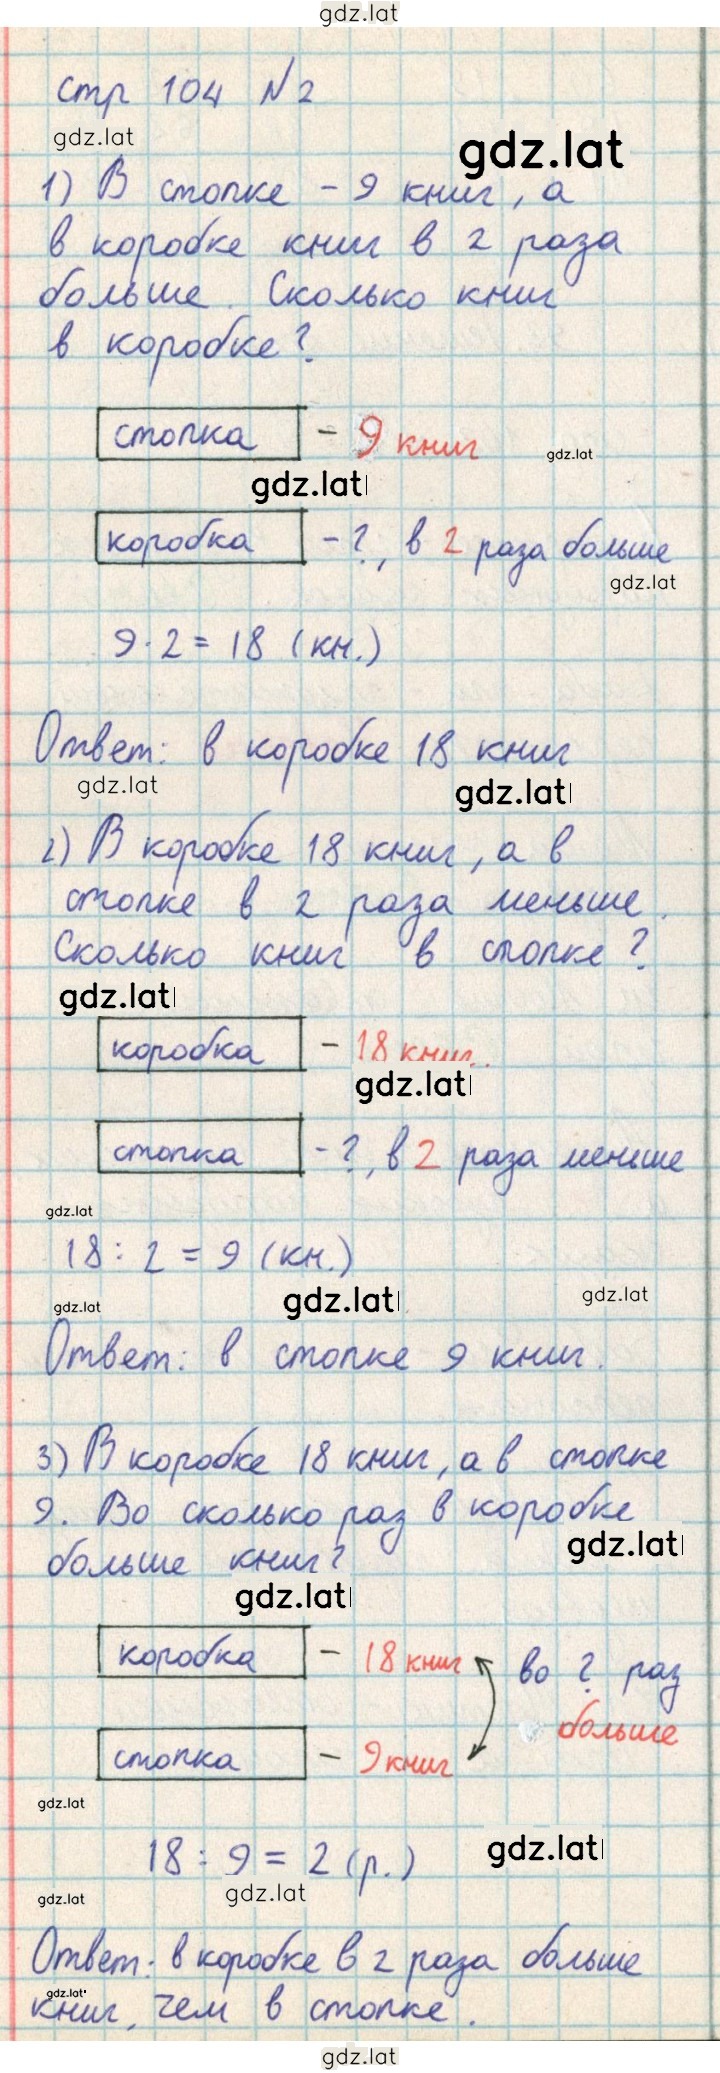 gdz.lat
стр 104 №2
gdz.lat
gdz.lat
1) В стопке - 9 книг, а
в коробке книг в 2 раза
больше. Сколько книг
в коробке?
стопка - 9 книг
gdz.lat
gdz.lat
коробка - ?, в 2 раза больше
gdz.lat
9·2=18 (кн.)
Ответ: в коробке 18 книг
gdz.lat
gdz.lat
2) В коробке 18 книг, а в
стопке в 2 раза меньше.
Сколько книг в стопке?
gdz.lat
коробка - 18 книг.
gdz.lat
стопка - ?, в 2 раза меньше
gdz.lat
18:2=9 (кн.)
gdz.lat
gdz.lat
gdz.lat
Ответ: в стопке 9 книг.
3) В коробке 18 книг, а в стопке
9. Во сколько раз в коробке
gdz.lat
больше книг?
gdz.lat
коробка - 18 книг во ? раз
больше
стопка - 9 книг
gdz.lat
18:9=2 (р.)
gdz.lat
gdz.lat
gdz.lat
Ответ: в коробке в 2 раза больше
gdz.lat
книг, чем в стопке.
gdz.lat